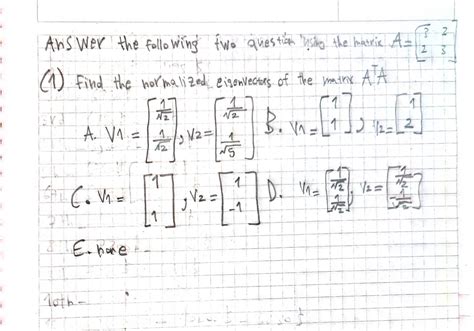 Answer the following two question using the matrix A = [3 2; 2 3]
(1) Find the normalized eigenvectors of the matrix AᵀA
A. V1 = [1/√2; 1/√2], V2 = [1/√2; 1/√5] B. V1 = [1; 1], V2 = [1; 2]
C. V1 = [1; 1], V2 = [1; -1] D. V1 = [1/√2; 1/√2], V2 = [1/√2; -1/√2]
E. none